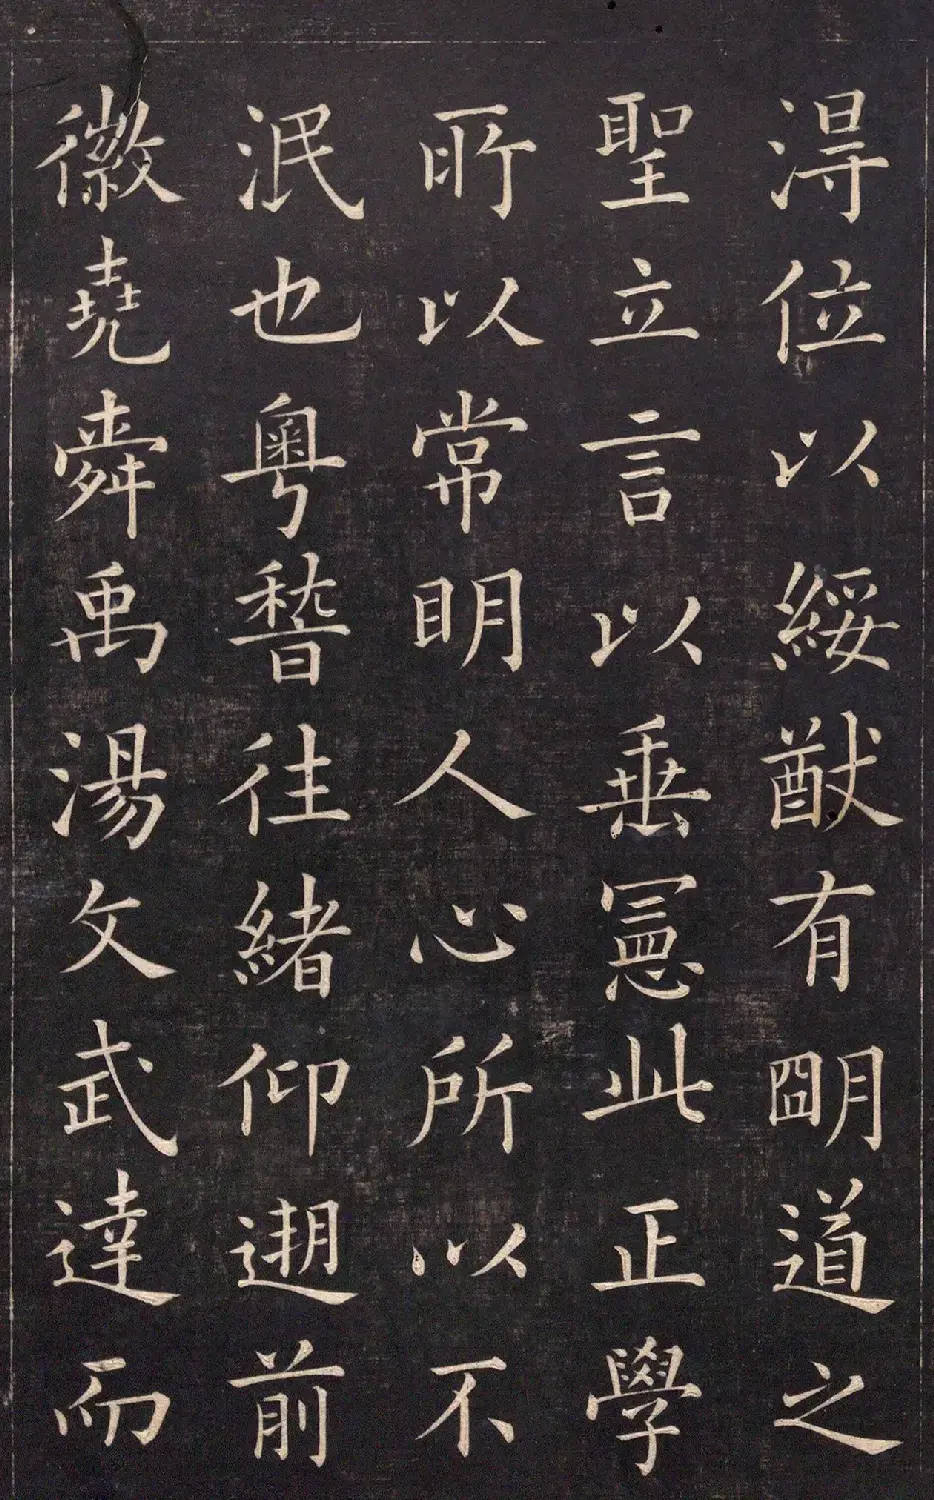 得位以綏猷有明道之
聖立言以垂憲此正學
所以常明人心所以不
泯也粵稽往緒仰遡前
徽堯舜禹湯文武達而